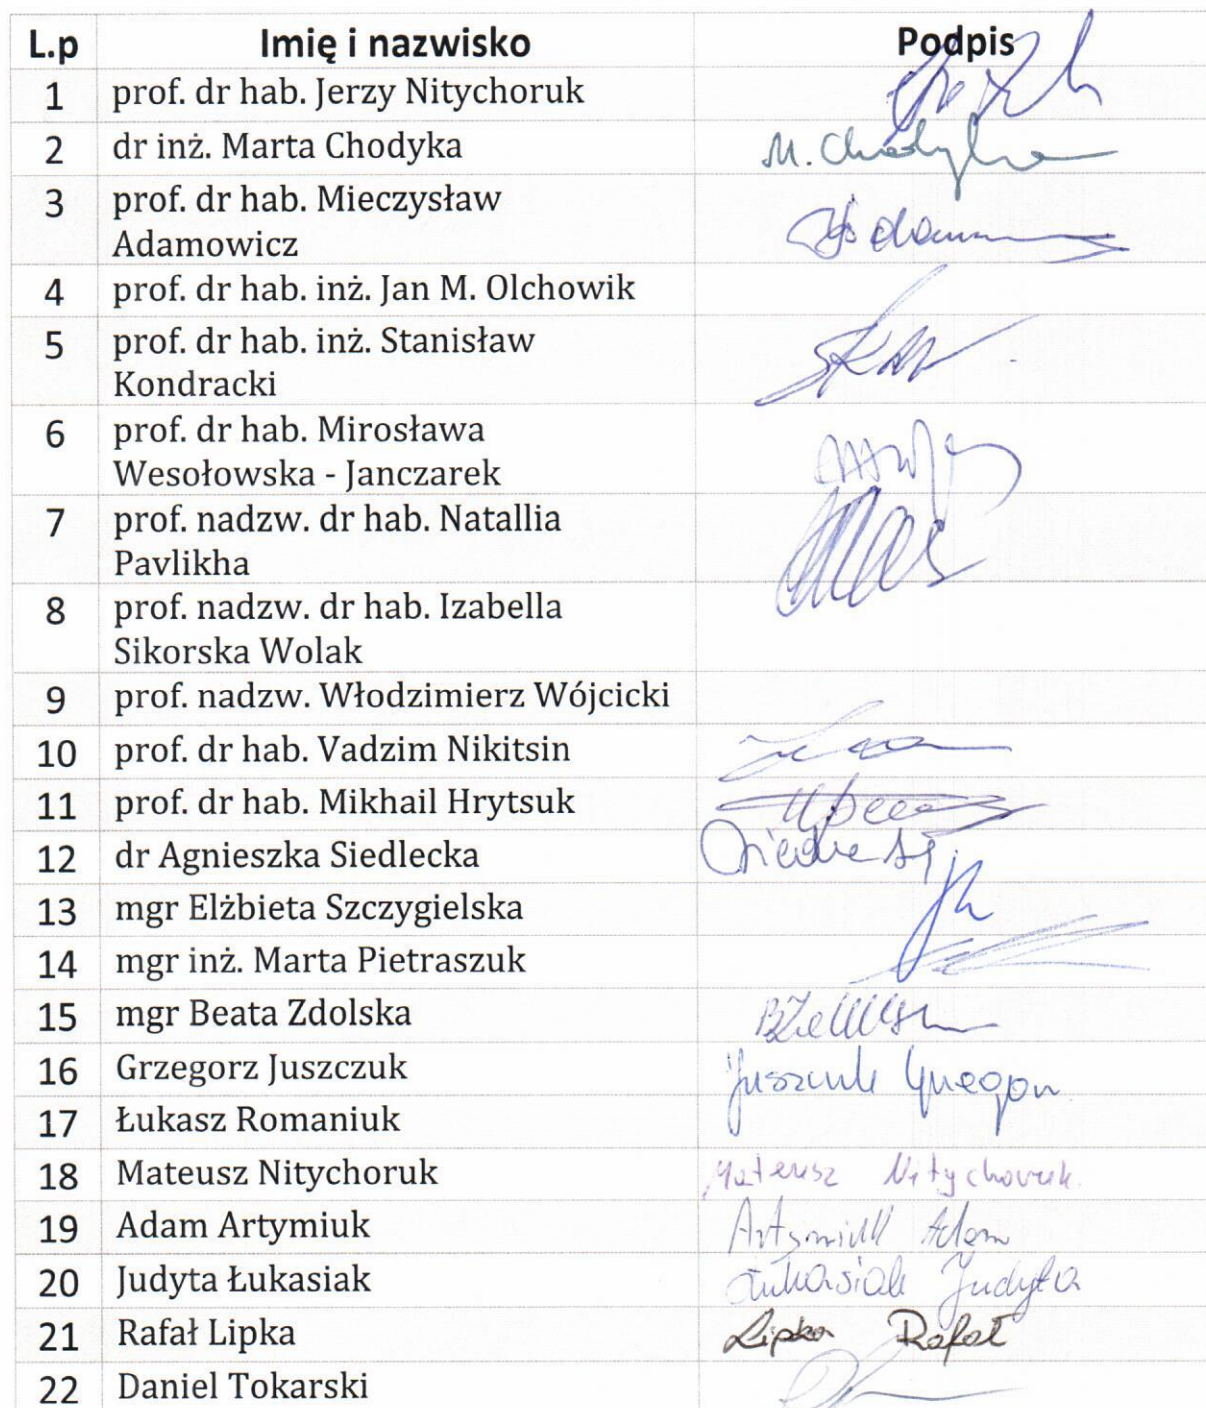 L.p Imię i nazwisko Podpis
1 prof. dr hab. Jerzy Nitychoruk
2 dr inż. Marta Chodyka M. Chodyka
3 prof. dr hab. Mieczysław
Adamowicz
4 prof. dr hab. inż. Jan M. Olchowik
5 prof. dr hab. inż. Stanisław
Kondracki
6 prof. dr hab. Mirosława
Wesołowska - Janczarek
7 prof. nadzw. dr hab. Natallia
Pavlikha
8 prof. nadzw. dr hab. Izabella
Sikorska Wolak
9 prof. nadzw. Włodzimierz Wójcicki
10 prof. dr hab. Vadzim Nikitsin
11 prof. dr hab. Mikhail Hrytsuk
12 dr Agnieszka Siedlecka
13 mgr Elżbieta Szczygielska
14 mgr inż. Marta Pietraszuk
15 mgr Beata Zdolska
16 Grzegorz Juszczuk
17 Łukasz Romaniuk
18 Mateusz Nitychoruk Mateusz Nitychoruk
19 Adam Artymiuk Artymiuk Adam
20 Judyta Łukasiak Łukasiak Judyta
21 Rafał Lipka Lipka Rafał
22 Daniel Tokarski